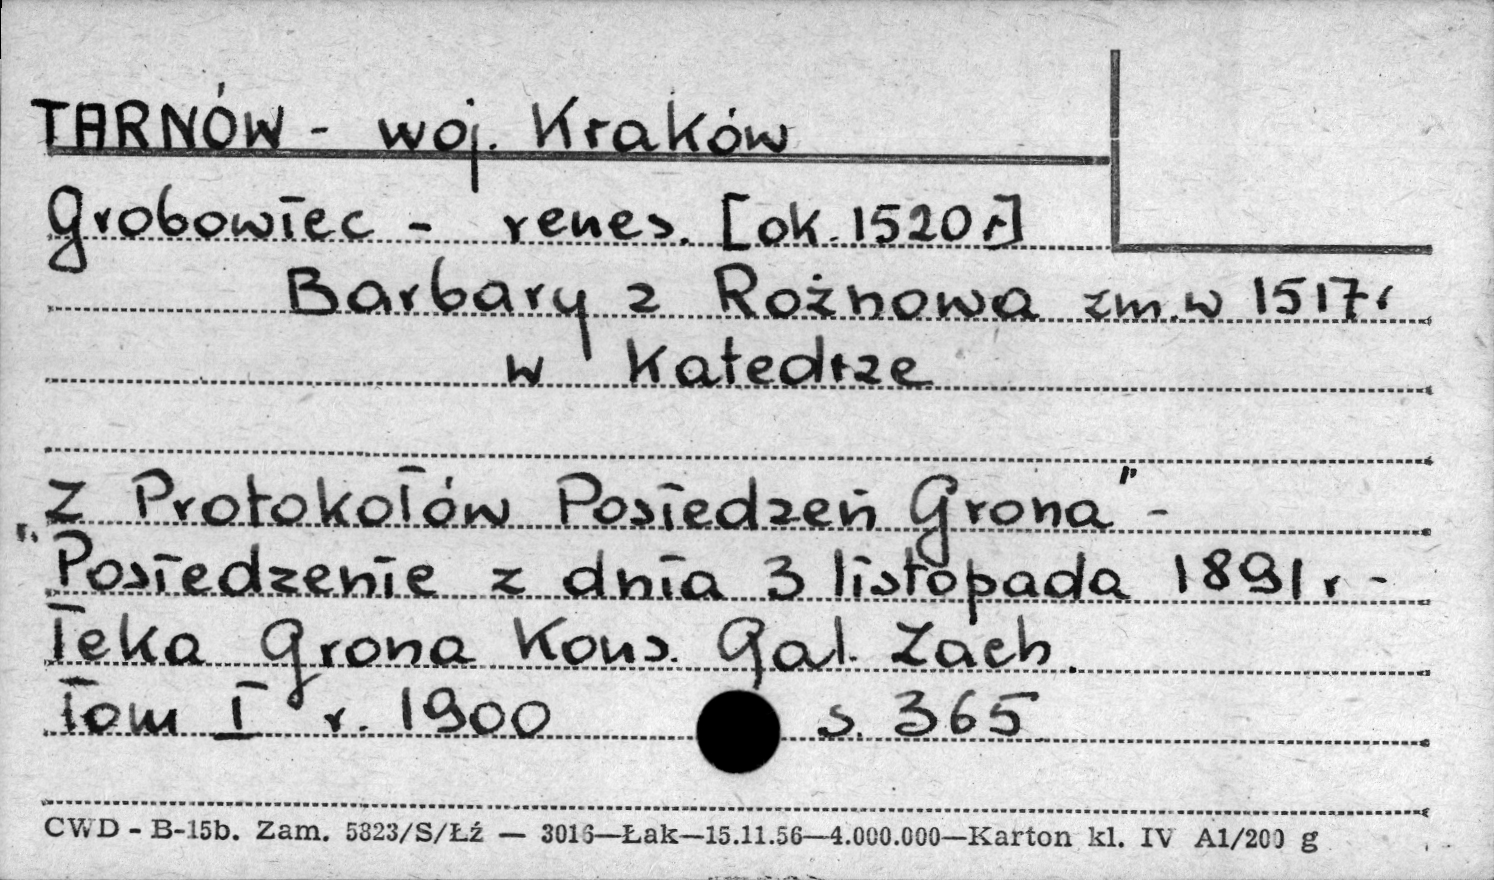 TARNÓW - woj. Kraków
Grobowiec - renes. [ok. 1520 r.]
Barbary z Rożnowa zm. w 1517 r
w Katedrze
„Z Protokołów Posiedzeń Grona" -
Posiedzenie z dnia 3 listopada 1891 r -
Teka Grona Kons. Gal. Zach.
Tom I r. 1900 s. 365
CWD - B-15b. Zam. 5323/S/Łź — 3016—Łak—15.11.56—4.000.000—Karton kl. IV A1/200 g